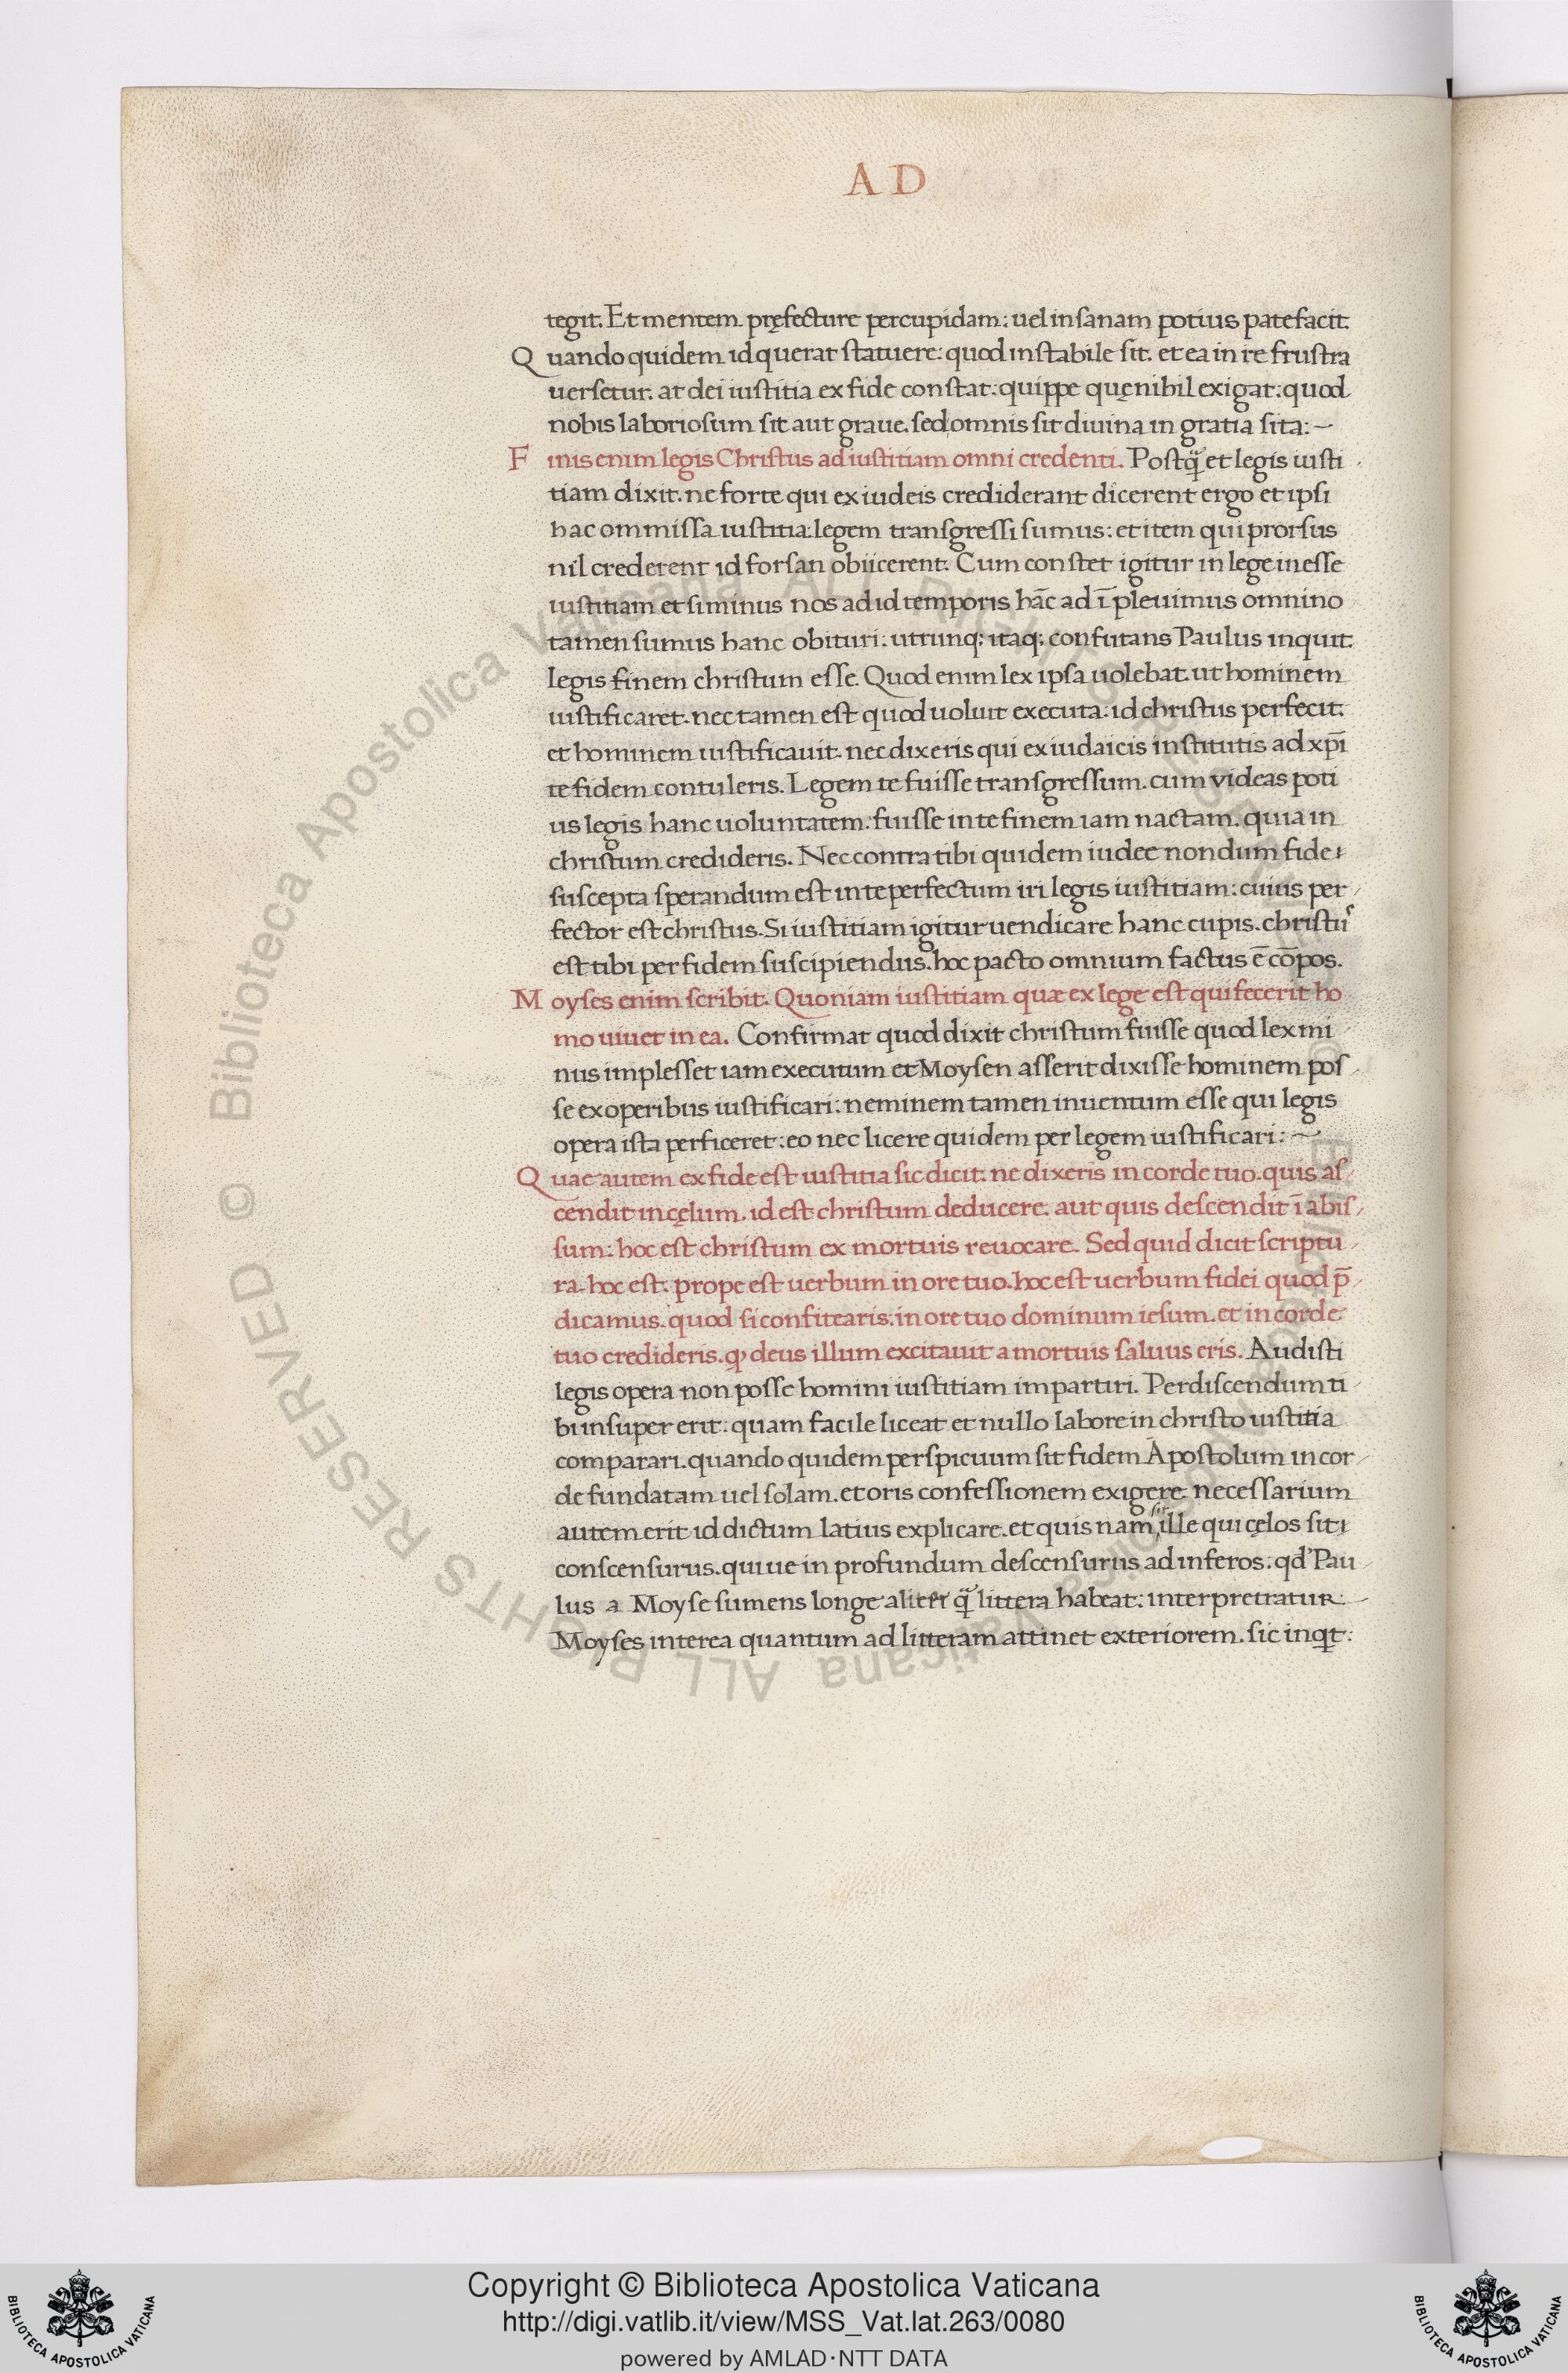 AD
tegit. Et mentem pręfecture percupidam: uel insanam potius patefacit.
Quando quidem id querat statuere: quod instabile sit. et ea in re frustra
uersetur. at dei iustitia ex fide constat: quippe quę nihil exigat: quod
nobis laboriosum sit aut graue. sed omnis sit diuina in gratia sita:~
Finis enim legis Christus ad iustitiam omni credenti. Postq̃ et legis iusti-
tiam dixit. ne forte qui ex iudeis crediderant dicerent ergo et ipsi
hac ommissa iustitia legem transgressi sumus: et item qui prorsus
nil crederent id forsan obiicerent. Cum constet igitur in lege inesse
iustitiam et siminus nos ad id temporis hāc ad ī pleuimus omnino
tamen sumus hanc obituri: utrunq; itaq; confutans Paulus inquit.
legis finem christum esse. Quod enim lex ipsa uolebat. ut hominem
iustificaret. nec tamen est quod uoluit executa: id christus perfecit.
et hominem iustificauit. nec dixeris qui ex iudaicis institutis ad xp̄i
te fidem contuleris. Legem te fuisse transgressum. cum videas poti
us legis hanc uoluntatem: fuisse in te finem iam nactam. quia in
christum credideris. Nec contra tibi quidem iudee nondum fide
suscepta sperandum est in te perfectum iri legis iustitiam: cuius per-
fector est christus. Si iustitiam igitur uendicare hanc cupis. christū
est tibi per fidem suscipiendus. hoc pacto omnium factus ē cōpos.
Moyses enim scribit. Quoniam iustitiam quæ ex lege est qui fecerit ho
mo uiuet in ea. Confirmat quod dixit christum fuisse quod lex mi
nus implesset iam executum et Moysen asserit dixisse hominem pos-
se ex operibus iustificari: neminem tamen inuentum esse qui legis
opera ista perficeret: eo nec licere quidem per legem iustificari:~
Quae autem ex fide est iustitia sic dicit. ne dixeris in corde tuo. quis as-
cendit in cęlum. id est christum deducere. aut quis descendit ī abis-
sum: hoc est christum ex mortuis reuocare. Sed quid dicit scriptu-
ra. hoc est. prope est uerbum in ore tuo. hoc est uerbum fidei quod p̄-
dicamus. quod si confitearis: in ore tuo dominum iesum. et in corde
tuo credideris. ꝙ deus illum excitauit a mortuis saluus eris. Audisti
legis opera non posse homini iustitiam impartiri. Perdiscendum ti-
bi insuper erit: quam facile liceat et nullo labore in christo iustitia
comparari. quando quidem perspicuum sit fidem Apostolum in cor-
de fundatam uel solam. et oris confessionem exigere. necessarium
autem erit id dictum latius explicare. et quis nam sit ille qui cęlos sit
conscensurus. qui ue in profundum descensurus ad inferos: qd' Pau-
lus a Moyse sumens longe aliter q̃ littera habeat: interpretratur.
Moyses interea quantum ad litteram attinet exteriorem. sic inqt:
© Biblioteca Apostolica Vaticana ALL RIGHTS RESERVED © Biblioteca Apostolica Vaticana ALL RIGHTS RESERVED
Copyright © Biblioteca Apostolica Vaticana
http://digi.vatlib.it/view/MSS_Vat.lat.263/0080
powered by AMLAD·NTT DATA
BIBLIOTECA APOSTOLICA VATICANA
BIBLIOTECA APOSTOLICA VATICANA